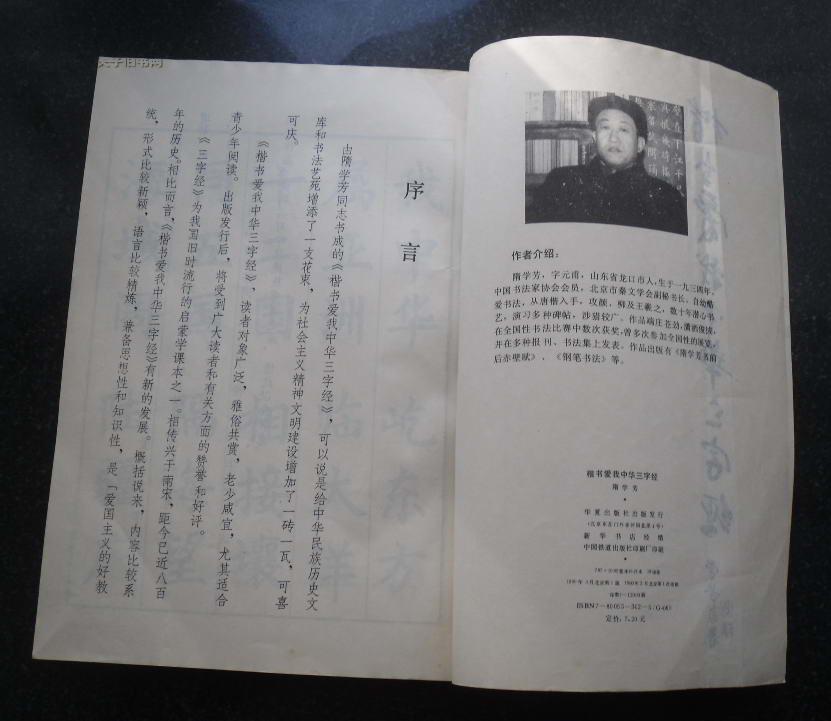 序言
由隋学芳同志书成的《楷书爱我中华三字经》，可以说是给中华民族历史文
库和书法艺苑增添了一支花束，为社会主义精神文明建设增加了一砖一瓦，可喜
可庆。
《楷书爱我中华三字经》，读者对象广泛，雅俗共赏，老少咸宜，尤其适合
青少年阅读。出版发行后，将受到广大读者和有关方面的赞誉和好评。
《三字经》为我国旧时流行的启蒙学课本之一。相传兴于南宋，距今已近八百
年的历史。相比而言，《楷书爱我中华三字经》有新的发展。概括说来，内容比较系
统，形式比较新颖，语言比较精炼，兼备思想性和知识性，是「爱国主义的好教
作者介绍：
隋学芳，字元甫，山东省龙口市人，生于一九三四年，
中国书法家协会会员，北京市秦文学会副秘书长，自幼酷
爱书法，从唐楷入手，攻颜、柳及王羲之，数十年潜心书
艺，演习多种碑帖，涉猎较广。作品端庄苍劲，潇洒俊拔，
在全国性书法比赛中数次获奖，曾多次参加全国性的展览，
并在多种报刊、书法集上发表。作品出版有《隋学芳书前
后赤壁赋》、《钢笔书法》等。
楷书爱我中华三字经
隋学芳
华夏出版社出版发行
新华书店经销
中国铁道出版社印刷厂印刷
ISBN7-80053-342-5/G·06
定价：7.20元